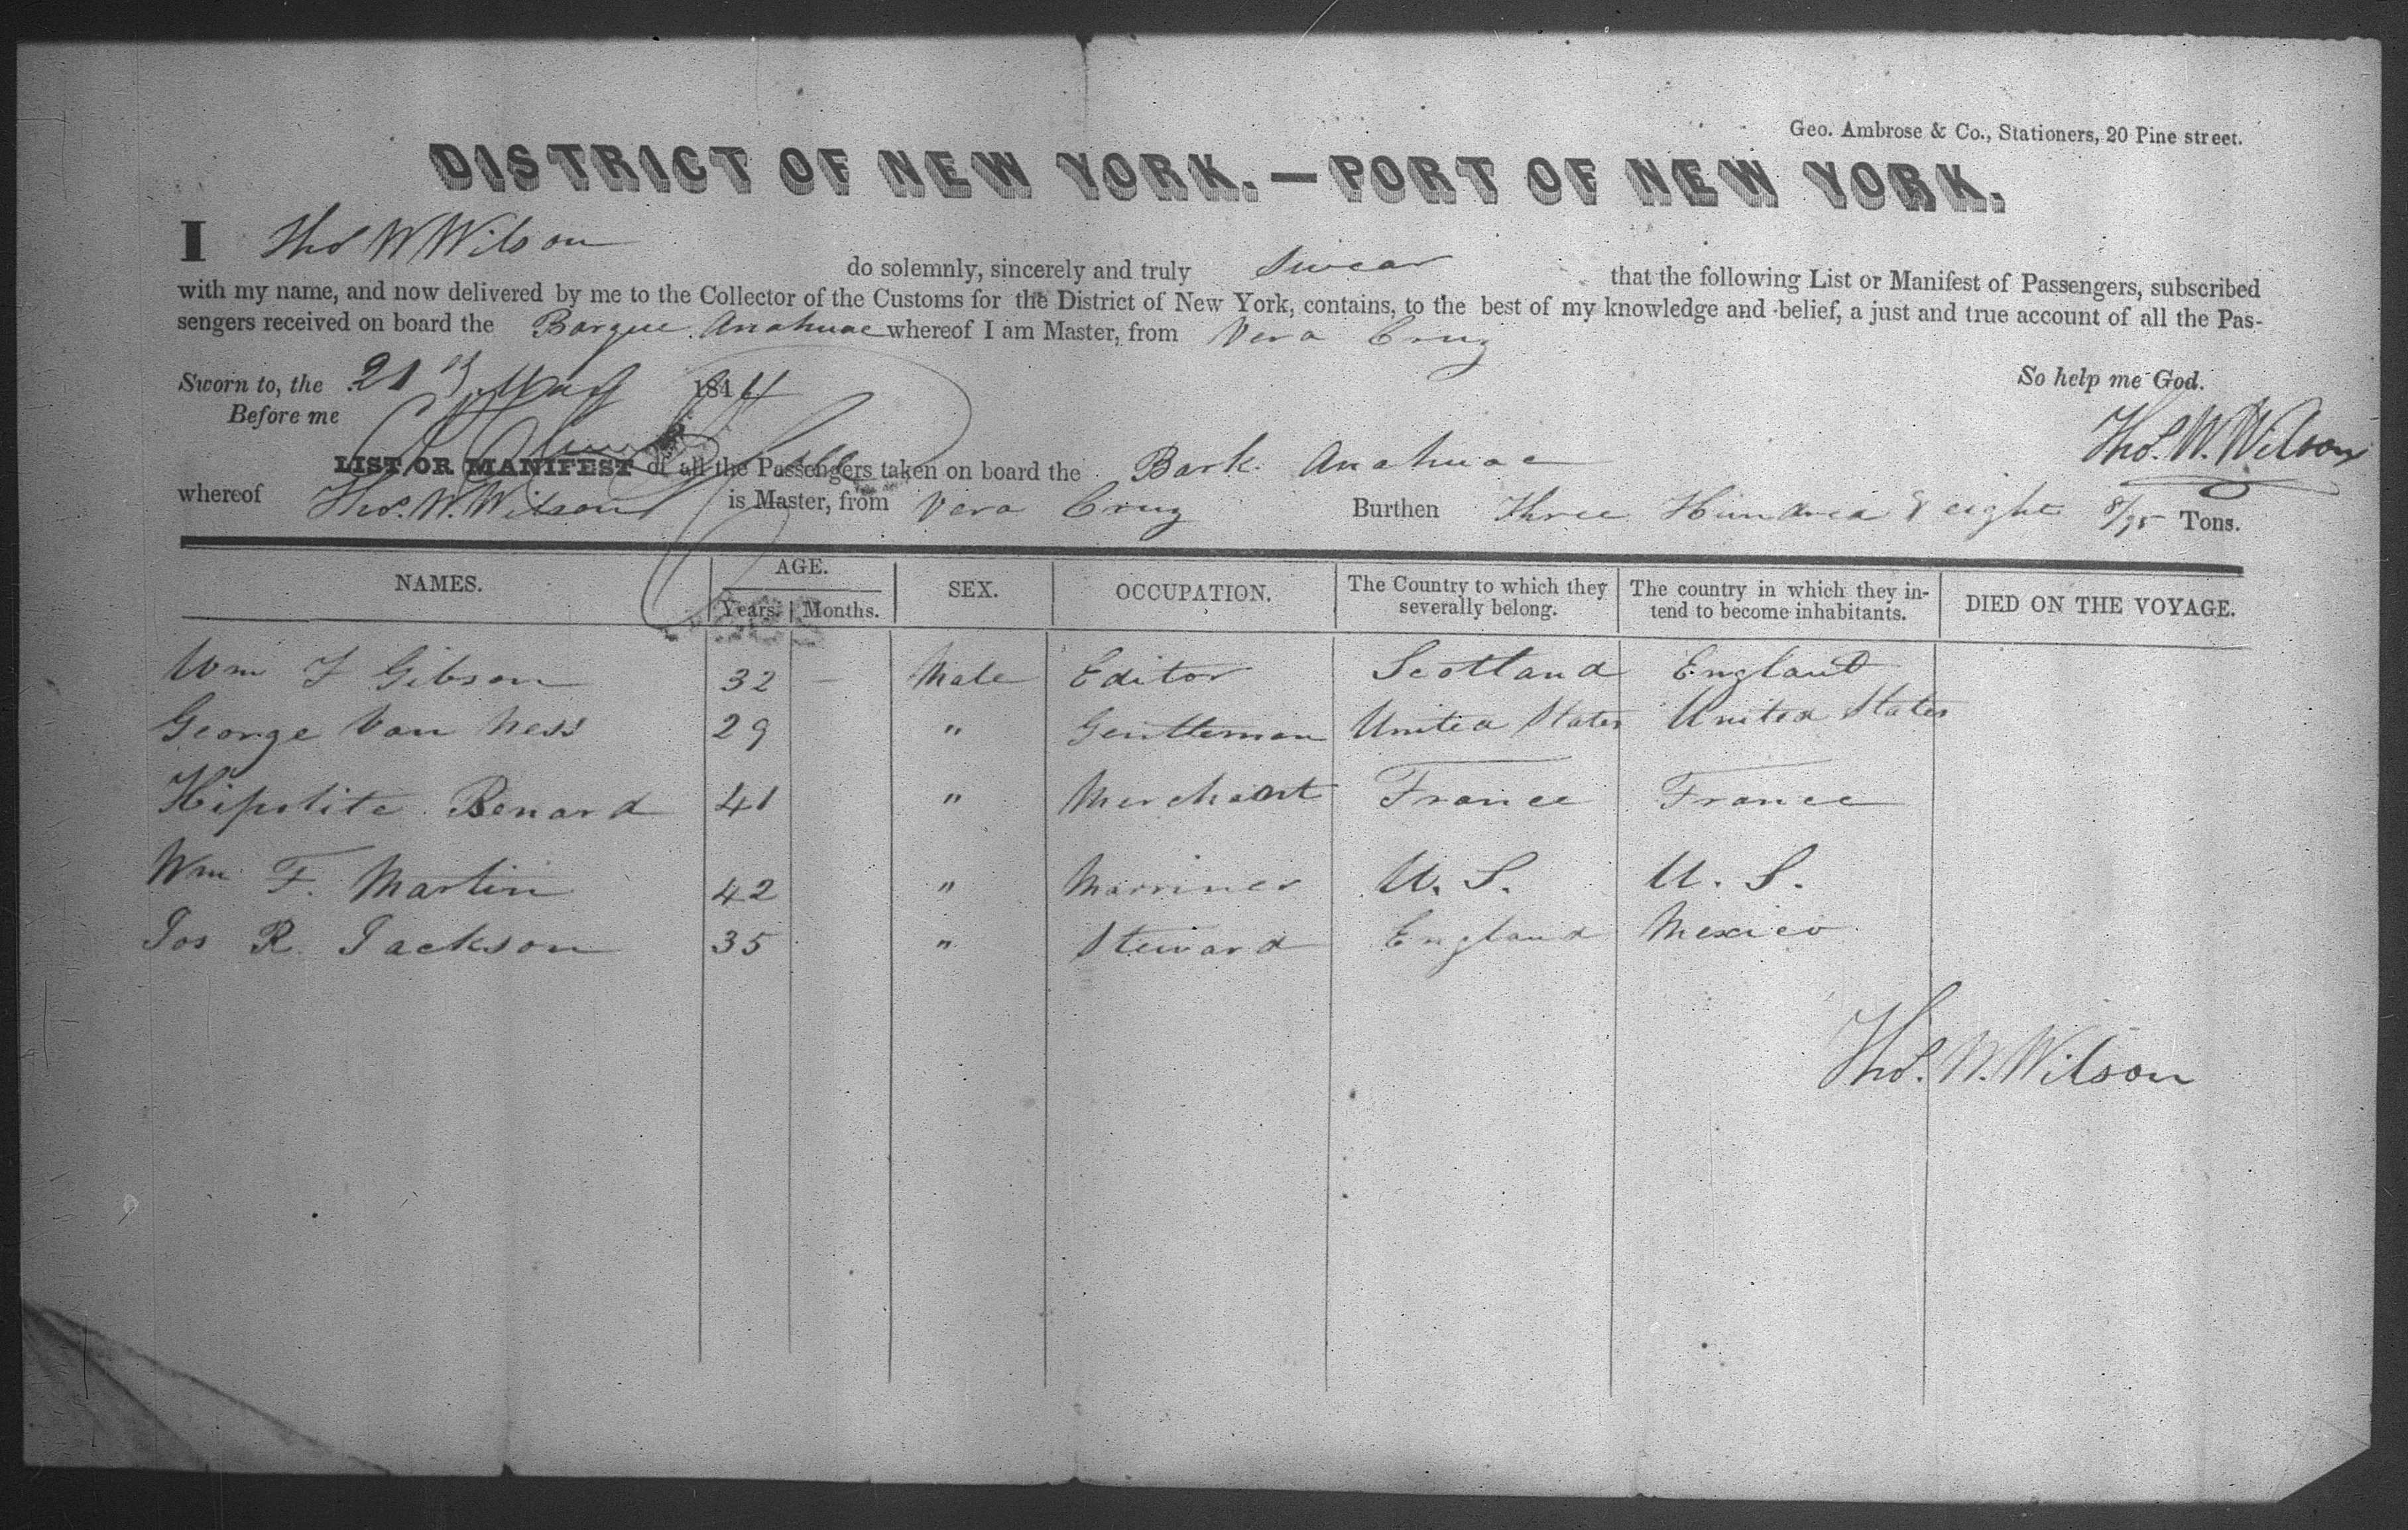 Geo. Ambrose & Co., Stationers, 20 Pine street.
DISTRICT OF NEW YORK.—PORT OF NEW YORK.
I Thos W Wilson do solemnly, sincerely and truly swear that the following List or Manifest of Passengers, subscribed
with my name, and now delivered by me to the Collector of the Customs for the District of New York, contains, to the best of my knowledge and belief, a just and true account of all the Pas-
sengers received on board the Barque Anahuac whereof I am Master, from Vera Cruz
Sworn to, the 21st May 1844 So help me God.
Before me Thos. W. Wilson
LIST OR MANIFEST of all the Passengers taken on board the Bark Anahuac
whereof Thos. W. Wilson is Master, from Vera Cruz Burthen Three Hundred & eight 8/95 Tons.
NAMES. AGE. Years. Months. SEX. OCCUPATION. The Country to which they severally belong. The country in which they in-tend to become inhabitants. DIED ON THE VOYAGE.
Wm F Gibson 32 — Male Editor Scotland England
George Van Ness 29 " Gentleman United States United States
Hipolite Benard 41 " Merchant France France
Wm F. Martin 42 " Marriner U. S. U. S.
Jos R. Jackson 35 " Steward England Mexico
Thos. W. Wilson